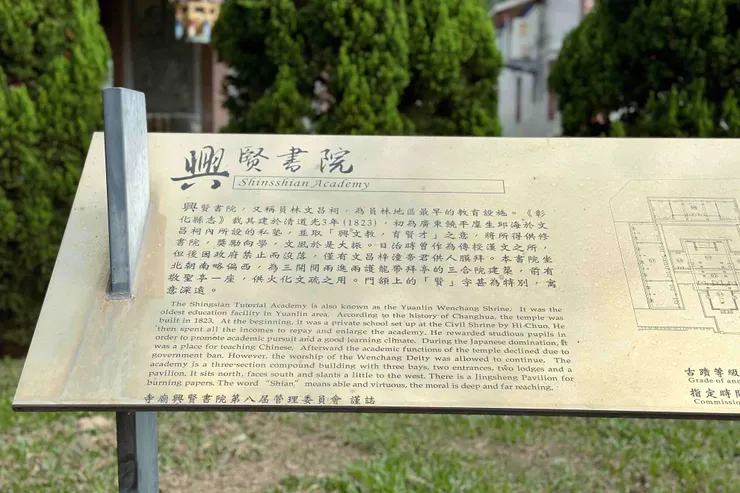 興賢書院
Shinsshian Academy
興賢書院，又稱員林文昌祠，為員林地區最早的教育設施。《彰
化縣志》載其建於清道光3年（1823），初為廣東饒平廩生邱海於文
昌祠內所設的私塾，並取「興文教，育賢才」之意，將所得供修
書院，獎勵向學，文風於是大振。日治時曾作為傳授漢文之所，
但後因政府禁止而沒落，僅有文昌梓潼帝君供人膜拜。本書院坐
北朝南略偏西，為三開間兩進兩護龍帶拜亭的三合院建築，前有
敬聖亭一座，供火化文疏之用。門額上的「賢」字甚為特別，寓
意深遠。
The Shingsian Tutorial Academy is also known as the Yuanlin Wenchang Shrine. It was the
oldest education facility in Yuanlin area. According to the history of Changhua, the temple was
built in 1823. At the beginning, it was a private school set up at the Civil Shrine by Hi-Chun. He
then spent all the incomes to repay and enlarge the academy. He rewarded studious pupils in
order to promote academic pursuit and a good learning climate. During the Japanese domination, it
was a place for teaching Chinese. Afterward the academic functions of the temple declined due to
government ban. However, the worship of the Wenchang Deity was allowed to continue. The
academy is a three-section compound building with three bays, two entrances, two lodges and a
pavilion. It sits north, faces south and slants a little to the west. There is a Jingsheng Pavilion for
burning papers. The word "Shian" means able and virtuous, the moral is deep and far reaching.
寺廟興賢書院第八屆管理委員會 謹誌
古蹟等級
Grade of anc
指定時間
Commission